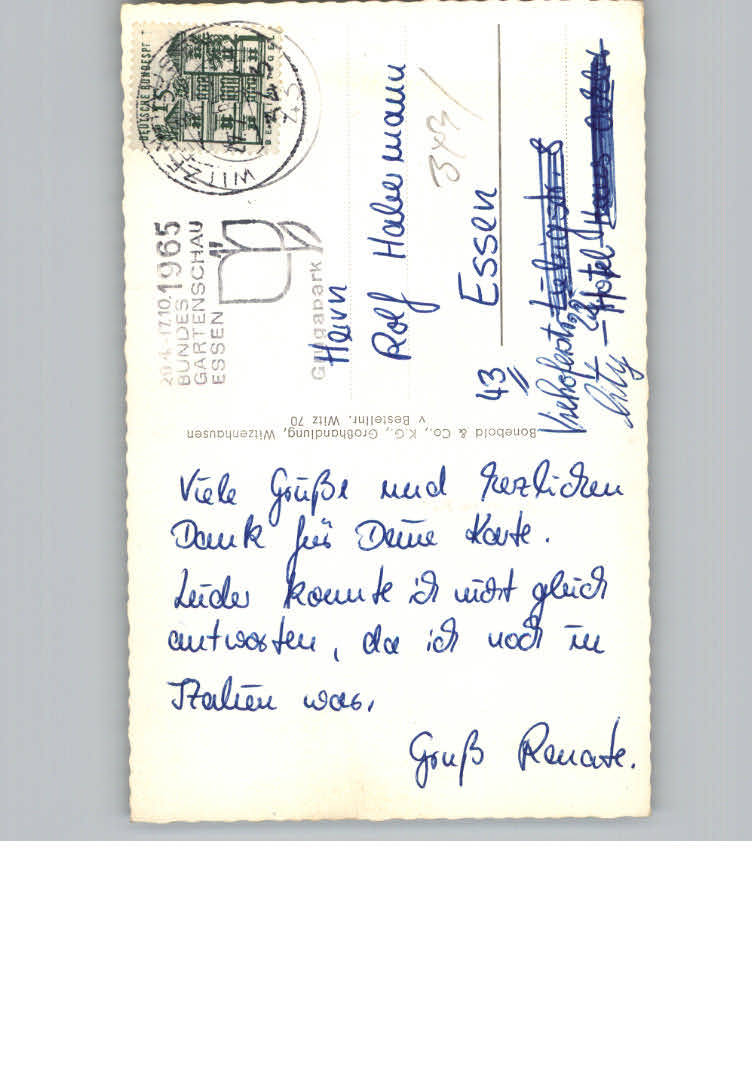 Viele Grüße und herzlichen
Dank für Deine Karte.
Leider konnte ich nicht gleich
antworten, da ich noch in
Italien war.
Gruß Renate.
Herrn
Rolf Habermann
43 Essen
Hotel
City
DEUTSCHE BUNDESPOST
1965
BUNDES
GARTENSCHAU
ESSEN
Grugapark
Bonebold & Co., K.G., Großhandlung, Witzenhausen
v Bestellnr. Witz 70